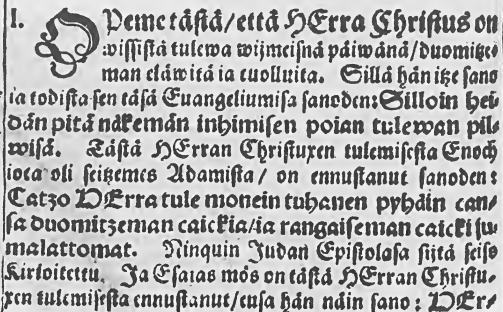 I. OPeme tästä/että HErra Christus on
wissistä tulewa wijmeisnä päiwänä/duomitze
man eläwitä ia cuolluita. Sillä hän itze sano
ia todista sen täsä Euangeliumisa sanoden: Silloin hei
dän pitä näkemän inhimisen poian tulewan pil
wisä. Tästä HErran Christuxen tulemisesta Enoch
ioca oli seitzemes Adamista/ on ennustanut sanoden:
Catzo HErra tule monein tuhanen pyhäin can/
sa duomitzeman caickia/ia rangaiseman caicki ju
malattomat. Ninquin Judan Epistolasa sijtä seiso
Kirioitettu. Ja Esaias mös on tästä HErran Christu/
xen tulemisesta ennustanut/cusa hän näin sano: HEr/